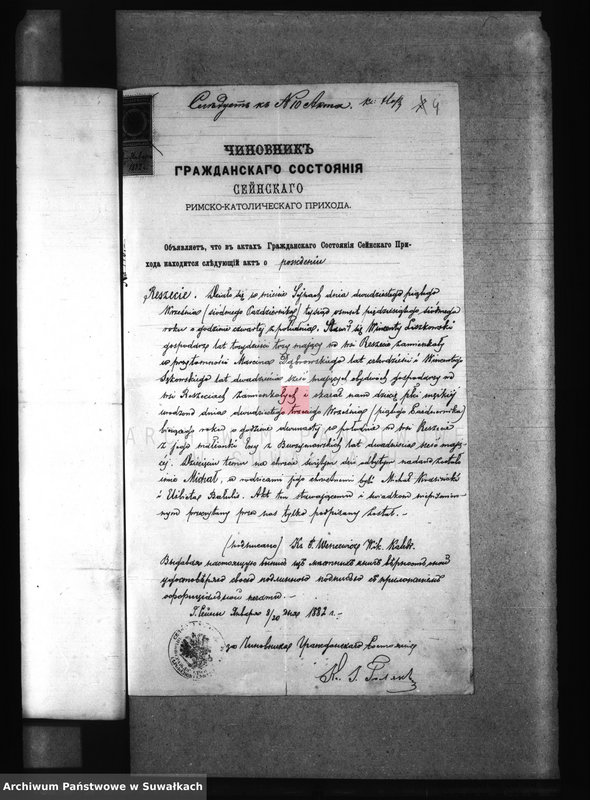 Слѣдуетъ къ N 10 Акта.
4
ЧИНОВНИКЪ
ГРАЖДАНСКАГО СОСТОЯНІЯ
СЕЙНСКАГО
РИМСКО-КАТОЛИЧЕСКАГО ПРИХОДА.
Объявляетъ, что въ актахъ Гражданскаго Состоянія Сейнскаго При-
хода находится слѣдующій актъ о рожденіи
Reszecie. Działo się w mieście Sejnach dnia dwudziestego piątego
Września (siódmego Października) tysiąc ośmset pięćdziesiątego siódmego
roku o godzinie czwartej z południa. Stawił się Wincenty
gospodarz lat trzydzieści trzy mający we wsi Reszcie zamieszkały
w przytomności Marcina Dąbrowskiego lat czterdzieści i Wincentego
lat dwadzieścia sześć mających obydwóch gospodarzy we
wsi Reszeciach zamieszkałych i okazał nam dziecię płci męzkiej
urodzone dnia dwudziestego trzeciego Września (piątego Października)
bieżącego roku o godzinie dwunastej w południe we wsi Reszecie
z jego małżonki Ewy z lat dwadzieścia sześć mają-
cej. Dziecięciu temu na chrzcie świętym dziś odbytym nadane zostało
imie Michał, a rodzicami jego chrzestnemi byli Michał
i Elżbieta Akt ten stawającemu i świadkom niepiśmien-
nym przeczytany przez nas tylko podpisany został. -
(podpisano) Ks.
Выдавая настоящую выпись изъ
удостовѣряю своею подписью съ приложеніемъ
оффиціальной печати.
Г. Сейны Января 8/20 дня 1882 г. -
за Чиновника Гражданскаго Состоянія
Archiwum Państwowe w Suwałkach